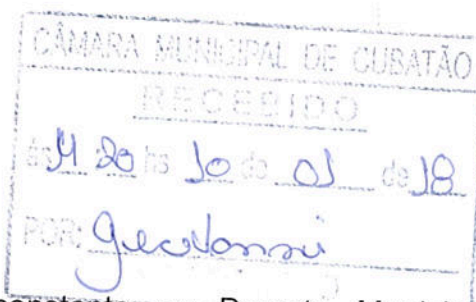 CÂMARA MUNICIPAL DE CUBATÃO
RECEBIDO
às 11:20 hs 10 de 01 de 18
POR: Geovanni